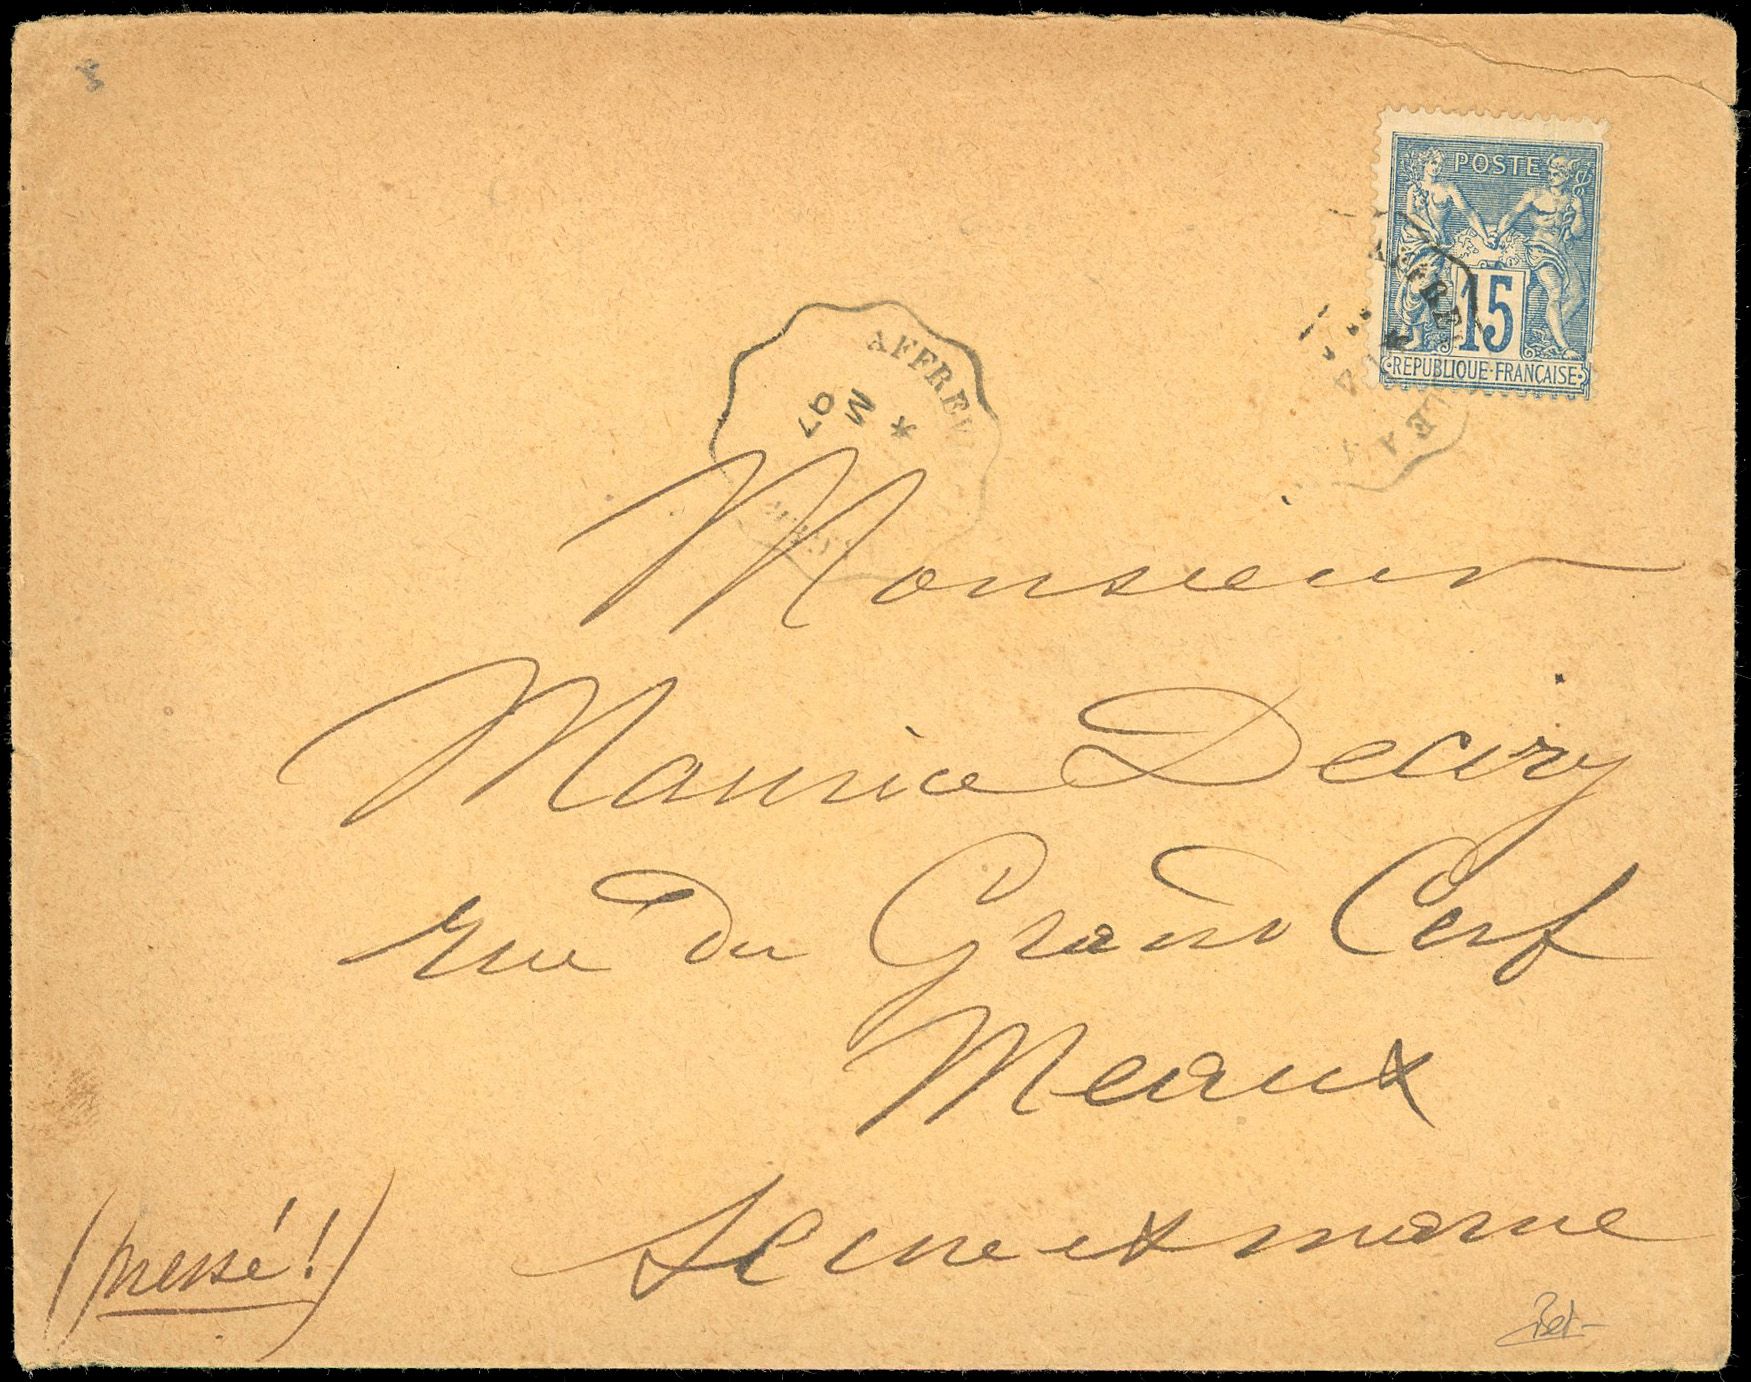 POSTE
15
REPUBLIQUE·FRANÇAISE
AFFREV
*
M
97
LE A
Monsieur
Maurice Deciry
rue du Grand Cerf
Meaux
Seine et marne
(pressé!)